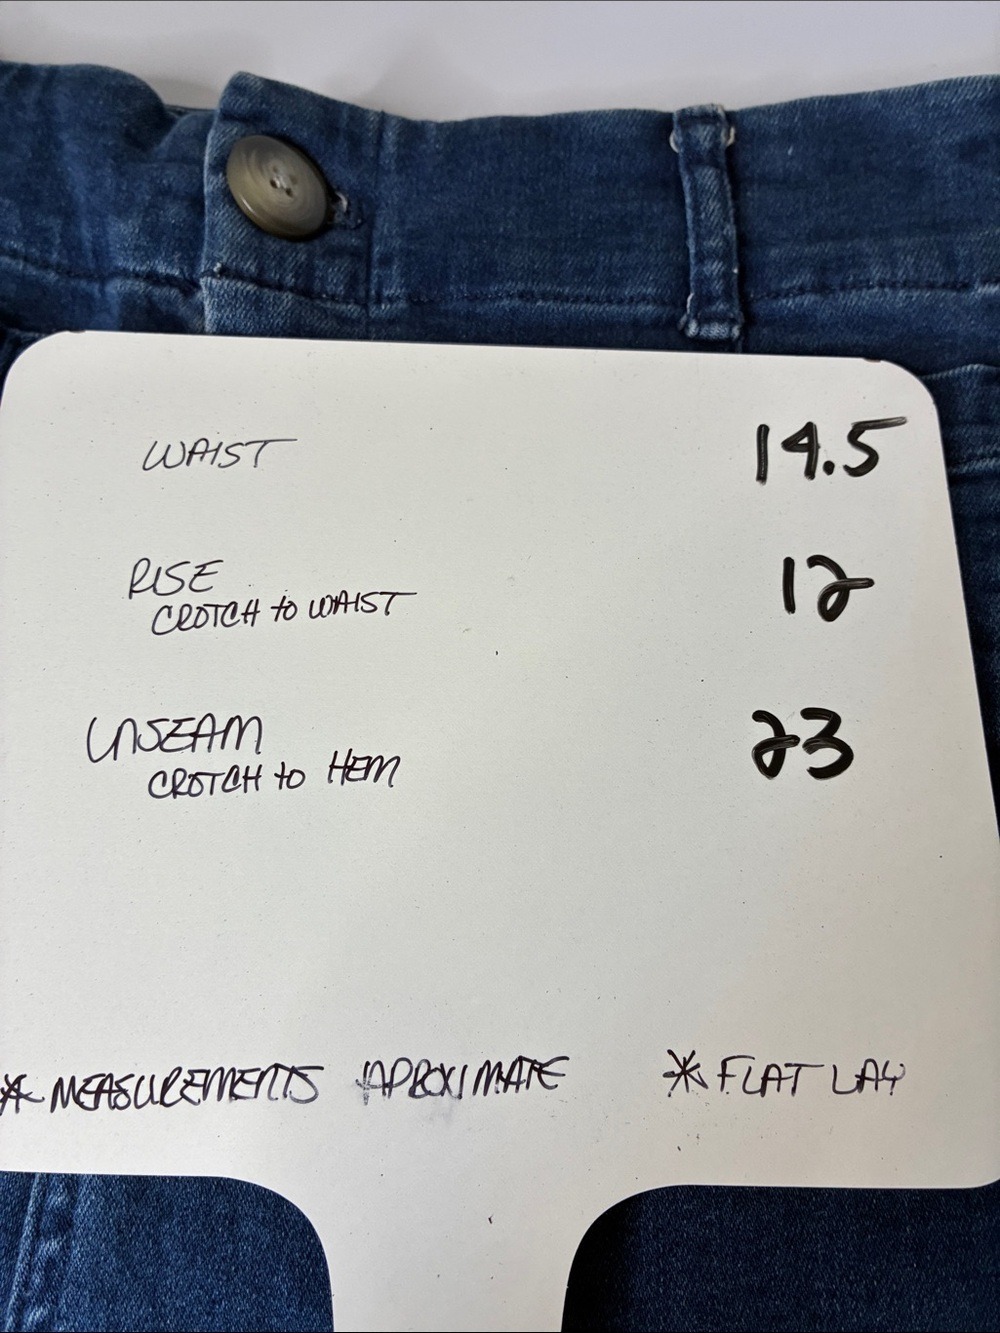 WAIST 14.5
RISE 12
CROTCH to WAIST
INSEAM 23
CROTCH to HEM
* MEASUREMENTS APROXIMATE * FLAT LAY